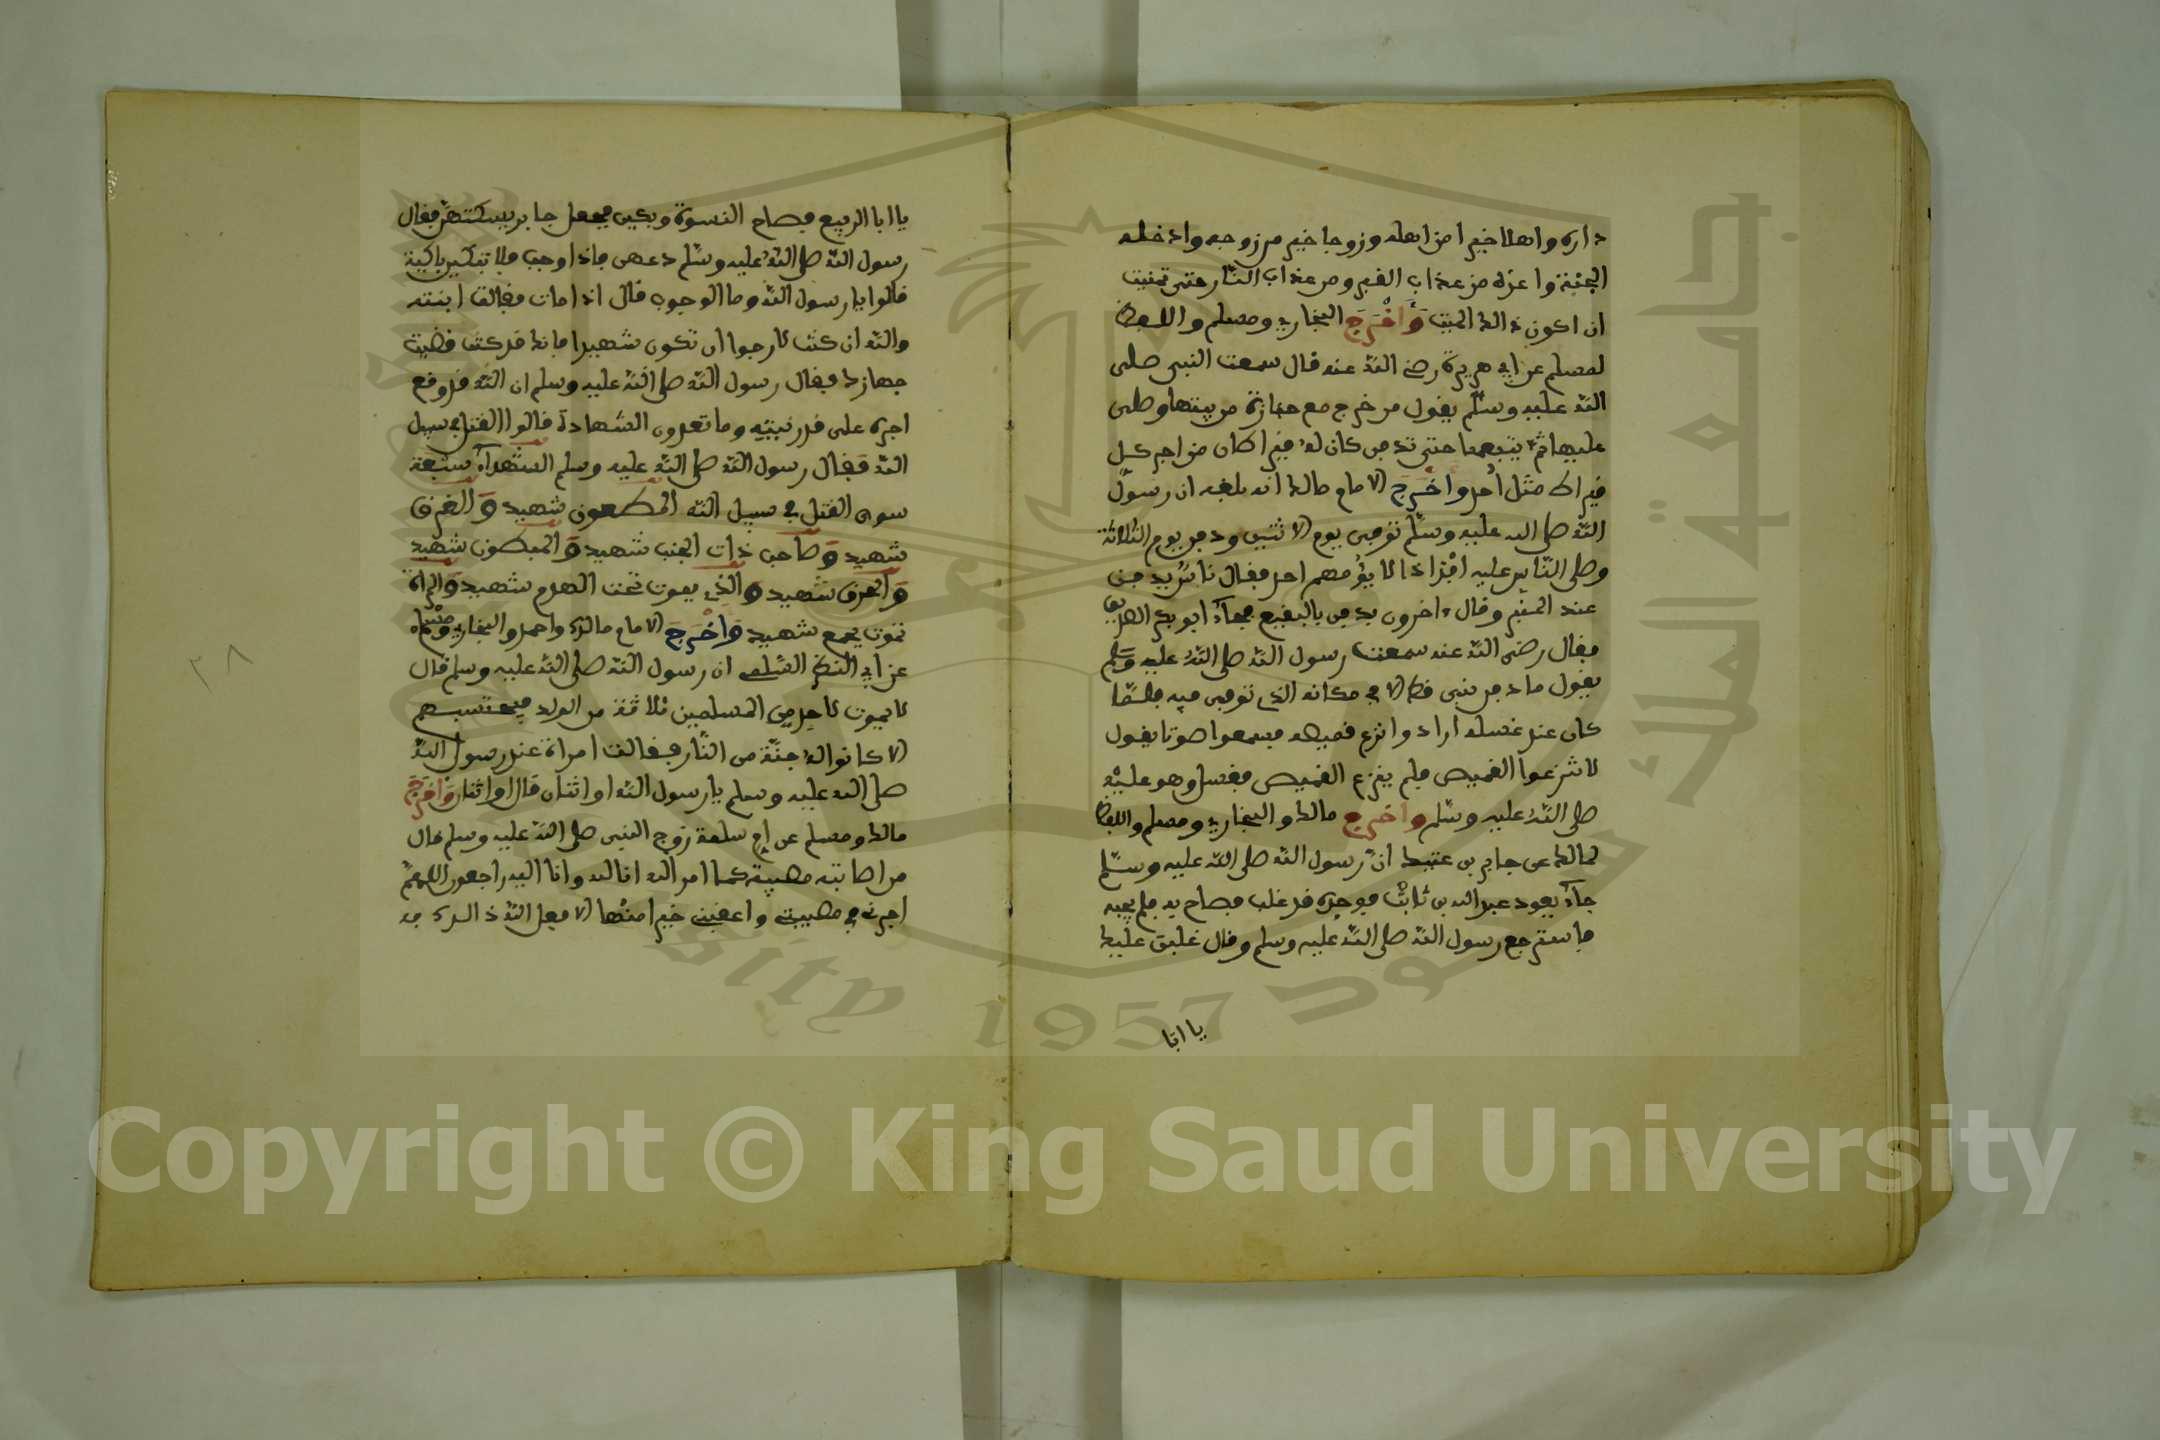 داره واهلا خيرا من اهله وزوجا خير من زوجه وادخله
الجنة واعذه من عذاب القبر ومن عذاب النار حتى تمنيت
ان اكون ذالك الميت وأخرج البخاري ومسلم واللفظ
لمسلم عن ابي هريرة رضي الله عنه قال سمعت النبي صلى
الله عليه وسلم يقول من خرج مع جنازة من بيتها وصلى
عليها ثم يتبعها حتى تدفن كان له قيراطان من اجر كل
قيراط مثل أحد وأخرج الامام مالك انه بلغه ان رسول
الله صلى الله عليه وسلم توفي يوم الاثنين ودفن يوم الثلاثة
وصلى الناس عليه افذاذا لا يؤمهم احد فقال ناس يدفن
عند المنبر وقال اخرون يدفن بالبقيع فجاء ابو بكر الصديق
فقال رضي الله عنه سمعت رسول الله صلى الله عليه وسلم
يقول ما دفن نبي قط الا في مكانه الذي توفي فيه فلما
كان عند غسله ارادوا نزع قميصه فسمعوا صوتا يقول
لا تنزعوا القميص فلم ينزع القميص فغسل وهو عليه
صلى الله عليه وسلم وأخرج مالك والبخاري ومسلم واللفظ
لمالك عن جابر بن عتيك ان رسول الله صلى الله عليه وسلم
جاء يعود عبد الله بن ثابت فوجده قد غلب فصاح به فلم يجبه
فاسترجع رسول الله صلى الله عليه وسلم وقال غلبن عليك
يا ابا
يا ابا الربيع فصاح النسوة وبكين فجعل جابر يسكتهن فقال
رسول الله صلى الله عليه وسلم دعهن فاذا وجب فلا تبكين باكية
قالوا يا رسول الله وما الوجوب قال اذا مات فقالت ابنته
والله ان كنت لارجوا ان تكون شهيدا فانك قد كنت قضيت
جهازك فقال رسول الله صلى الله عليه وسلم ان الله قد وقع
اجره على قدر نيته وما تعدون الشهادة قالوا القتل في سبيل
الله فقال رسول الله صلى الله عليه وسلم الشهدآء سبعة
سوى القتل في سبيل الله المطعون شهيد والغرق
شهيد وصاحب ذات الجنب شهيد والمبطون شهيد
والحرق شهيد والذي يموت تحت الهدم شهيد والمراة
تموت بجمع شهيد وأخرج الامام مالك واحمد والبخاري ومسلم
عن ابي النضر السلمي ان رسول الله صلى الله عليه وسلم قال
لا يموت لاحد من المسلمين ثلاثة من الولد فيحتسبهم
الا كانوا له جنة من النار فقالت امراة عند رسول الله
صلى الله عليه وسلم يا رسول الله او اثنان قال او اثنان وأخرج
مالك ومسلم عن ام سلمة زوج النبي صلى الله عليه وسلم قال
من اصابته مصيبة كما امر الله انا لله وانا اليه راجعون اللهم
اجرني في مصيبتي واعقبني خيرا منها الا فعل الله ذالك به
٢٨
Copyright © King Saud University
جامعة الملك سعود
sity 1957